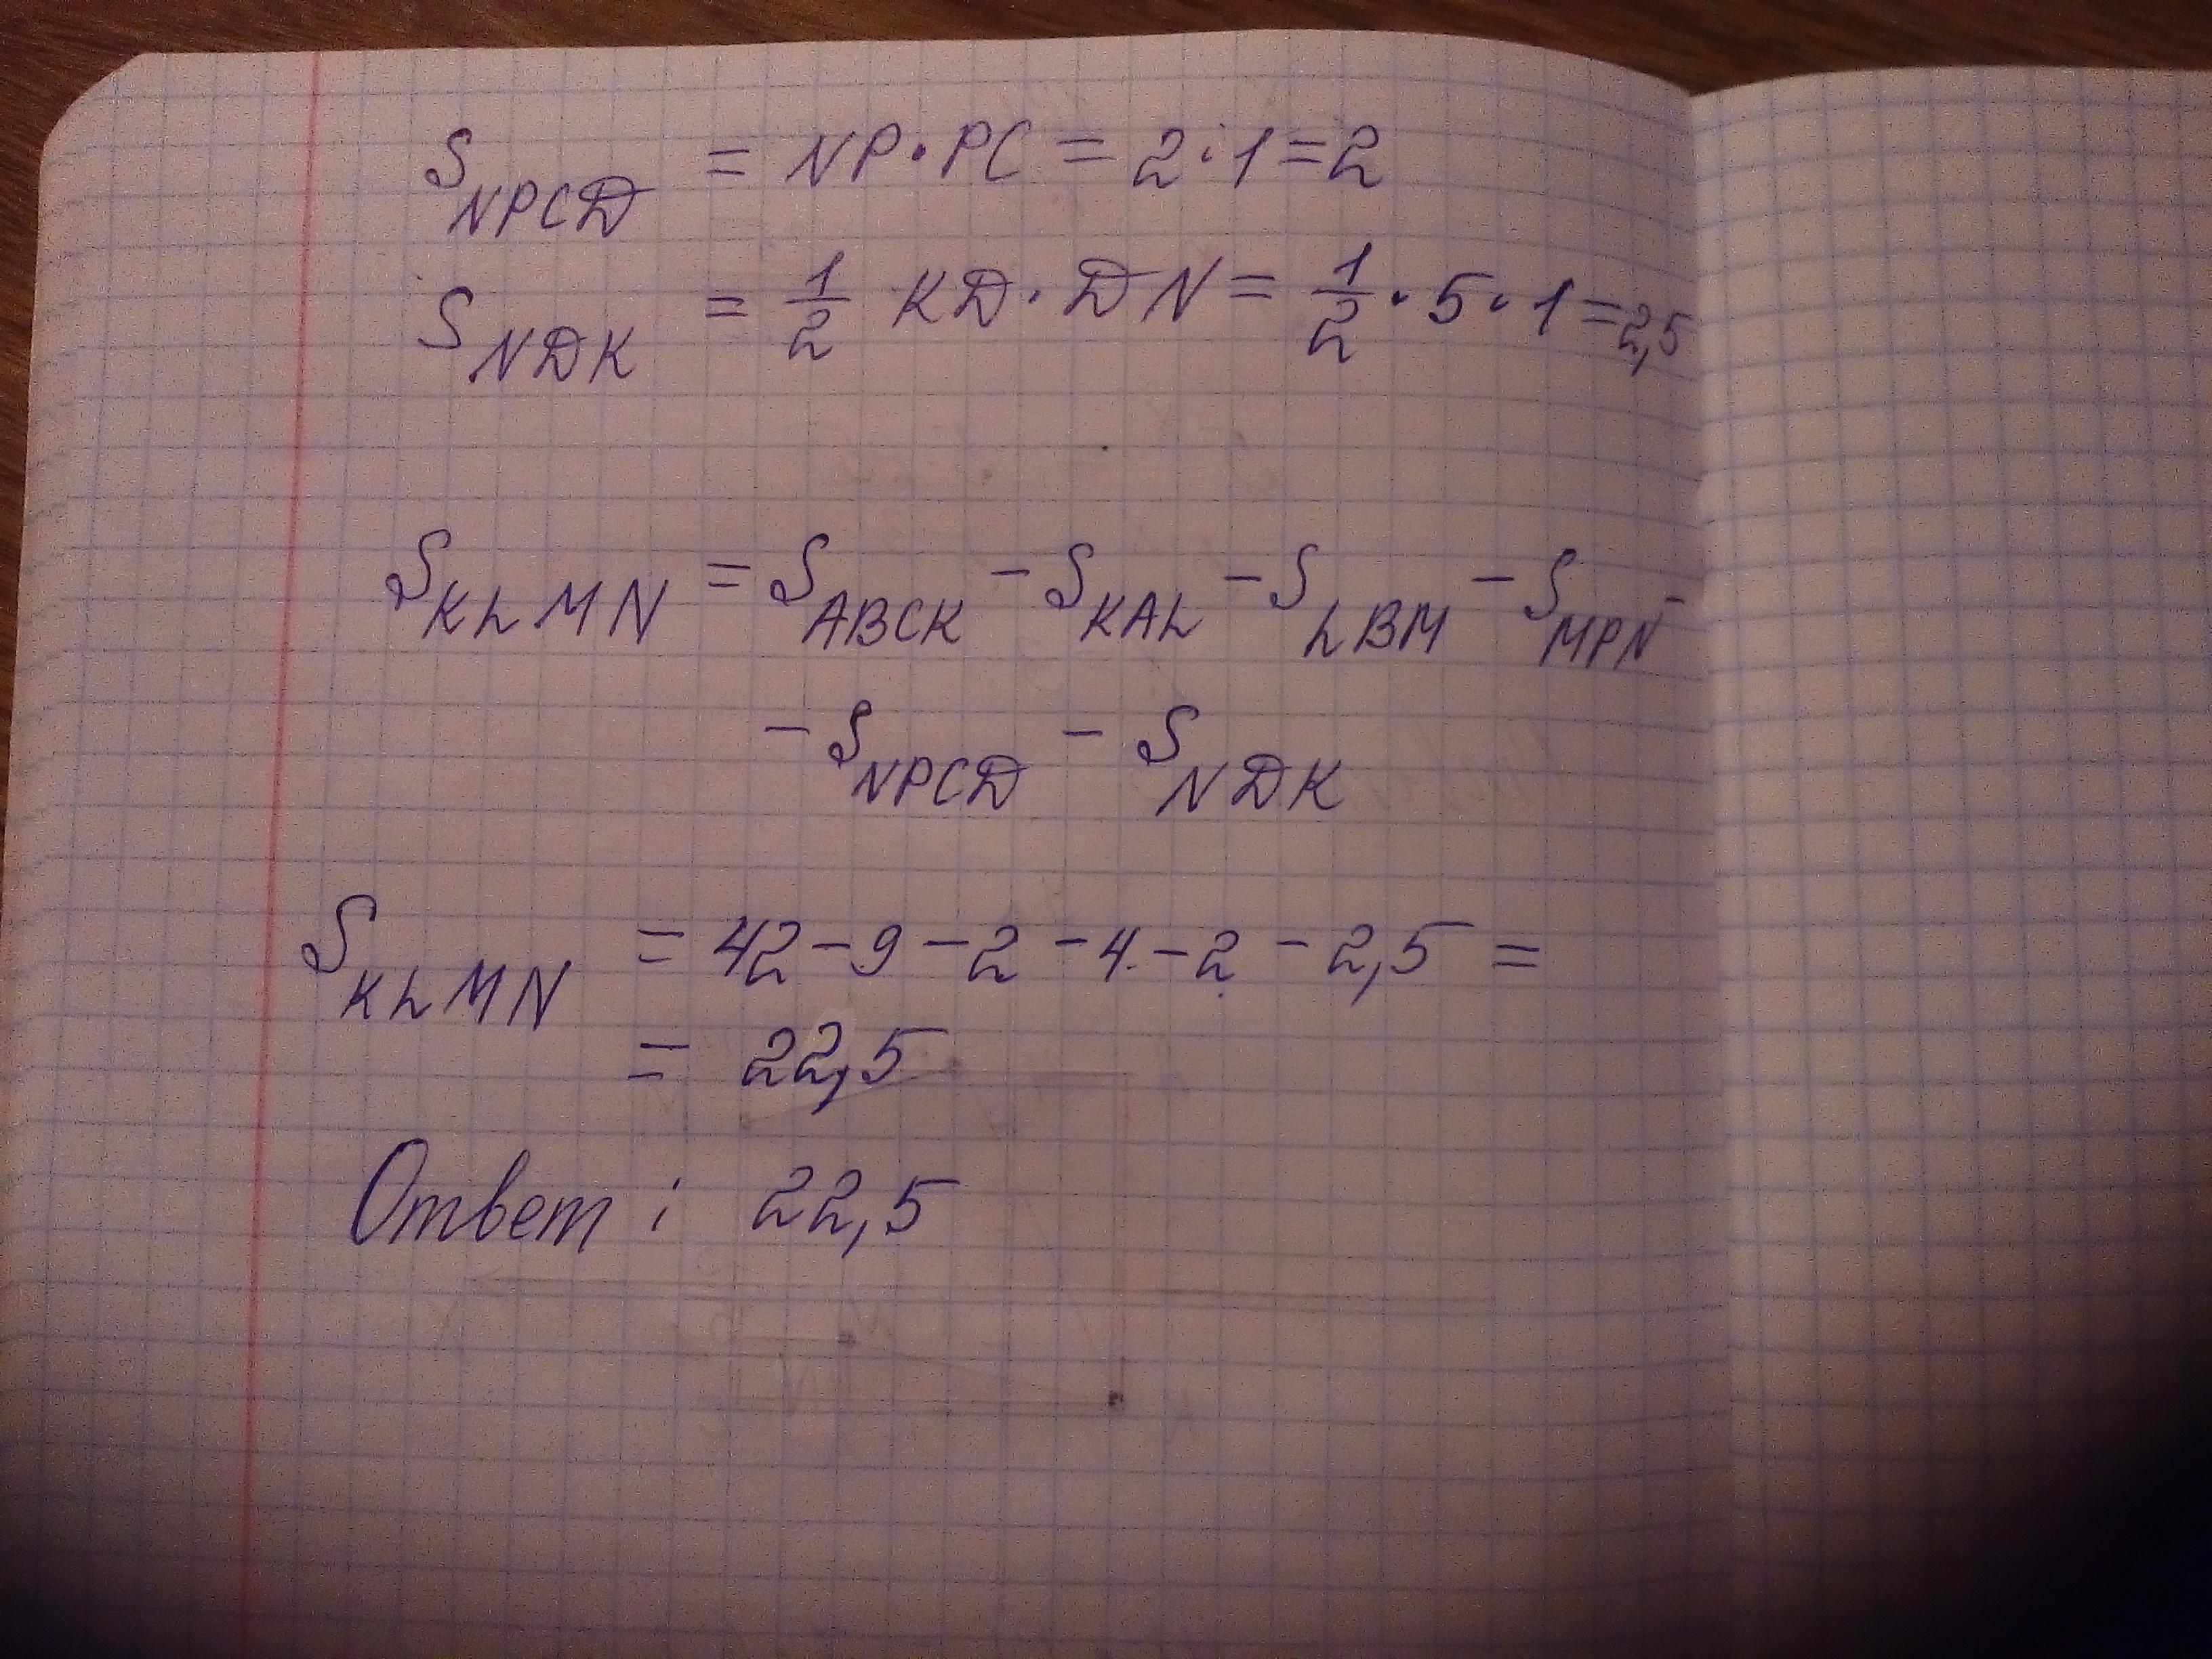 S NPCD = NP · PC = 2 · 1 = 2
S NDK = 1/2 KD · DN = 1/2 · 5 · 1 = 2,5
S KLMN = S ABCK - S KAL - S LBM - S MPN -
- S NPCD - S NDK
S KLMN = 42 - 9 - 2 - 4 - 2 - 2,5 =
= 22,5
Ответ: 22,5